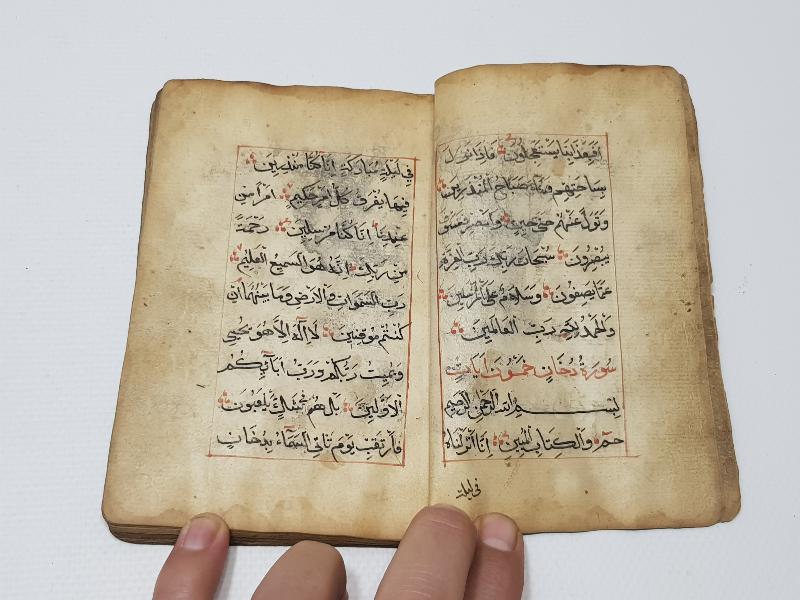 أَفَبِعَذَابِنَا يَسْتَعْجِلُونَ فَإِذَا نَزَلَ
بِسَاحَتِهِمْ فَسَاءَ صَبَاحُ الْمُنْذَرِينَ
وَتَوَلَّ عَنْهُمْ حَتَّى حِينٍ وَأَبْصِرْ فَسَوْفَ
يُبْصِرُونَ سُبْحَانَ رَبِّكَ رَبِّ الْعِزَّةِ
عَمَّا يَصِفُونَ وَسَلَامٌ عَلَى الْمُرْسَلِينَ
وَالْحَمْدُ لِلَّهِ رَبِّ الْعَالَمِينَ
سُورَةُ دُخَان خَمْسُونَ آيَات
بِسْمِ اللَّهِ الرَّحْمَنِ الرَّحِيمِ
حم وَالْكِتَابِ الْمُبِينِ إِنَّا أَنْزَلْنَاهُ
فى ليلة
فِي لَيْلَةٍ مُبَارَكَةٍ إِنَّا كُنَّا مُنْذِرِينَ
فِيهَا يُفْرَقُ كُلُّ أَمْرٍ حَكِيمٍ أَمْرًا مِنْ
عِنْدِنَا إِنَّا كُنَّا مُرْسِلِينَ رَحْمَةً
مِنْ رَبِّكَ إِنَّهُ هُوَ السَّمِيعُ الْعَلِيمُ
رَبِّ السَّمَوَاتِ وَالْأَرْضِ وَمَا بَيْنَهُمَا إِنْ
كُنْتُمْ مُوقِنِينَ لَا إِلَهَ إِلَّا هُوَ يُحْيِي
وَيُمِيتُ رَبُّكُمْ وَرَبُّ آبَائِكُمُ
الْأَوَّلِينَ بَلْ هُمْ فِي شَكٍّ يَلْعَبُونَ
فَارْتَقِبْ يَوْمَ تَأْتِي السَّمَاءُ بِدُخَانٍ